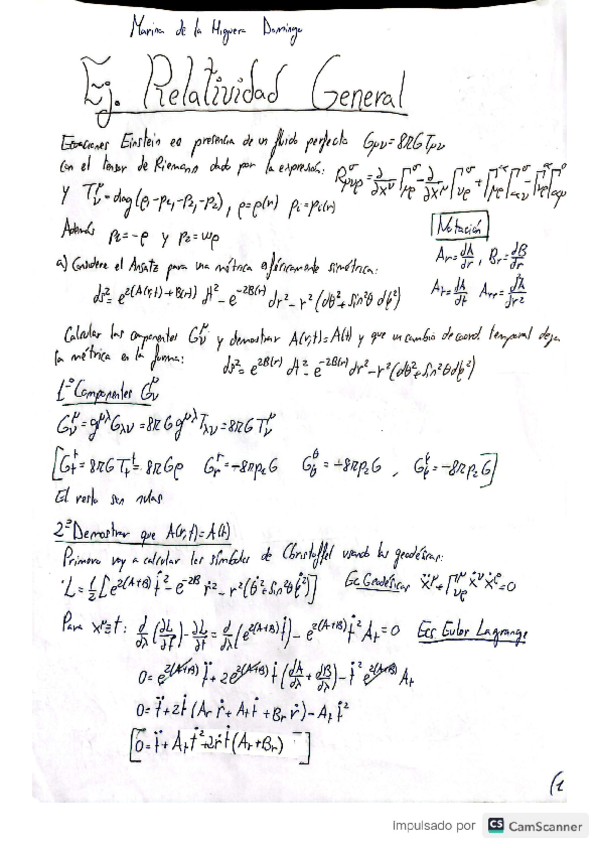 Marina de la Higuera Domingo
Ej. Relatividad General
Ecuaciones Einstein en presencia de un fluido perfecto Gμν=8πGTμν
Con el tensor de Riemann dado por la expresión: R^σ_μνρ = ∂/∂x^ν Γ^σ_μρ - ∂/∂x^μ Γ^σ_νρ + Γ^α_μρ Γ^σ_αν - Γ^α_νρ Γ^σ_αμ
y T^μ_ν=diag(ρ,-p₁,-p₂,-p₂), ρ=ρ(r) pᵢ=pᵢ(r)
Además p₁=-ρ y p₂=wρ
Notación
Ar=dA/dr, Br=dB/dr
At=dA/dt Arr=d²A/dr²
a) Considere el Ansatz para una métrica esféricamente simétrica:
ds²=e^(2(A(r,t)+B(r)))dt²-e^(-2B(r))dr²-r²(dθ²+sin²θdφ²)
Calcular las componentes G^μ_ν y demostrar A(r,t)=A(t) y que un cambio de coord. temporal deja
la métrica en la forma: ds²=e^(2B(r))dt²-e^(-2B(r))dr²-r²(dθ²+sin²θdφ²)
1º Componentes G^μ_ν
G^μ_ν=g^μλ G_λν=8πG g^μλ T_λν=8πG T^μ_ν
[G^t_t=8πG T^t_t=8πGρ G^r_r=-8πp₁G G^θ_θ=-8πp₂G, G^φ_φ=-8πp₂G]
El resto son nulas
2º Demostrar que A(r,t)=A(t)
Primero voy a calcular los símbolos de Christoffel usando las geodésicas:
L=1/2[e^(2(A+B))ṫ²-e^(-2B)ṙ²-r²(θ̇²+sin²θφ̇²)] Ec Geodésicas ẍ^μ+Γ^μ_νρ ẋ^ν ẋ^ρ=0
Para x^μ≡t: d/dλ(∂L/∂ṫ)-∂L/∂t=d/dλ(e^(2(A+B))ṫ)-e^(2(A+B))ṫ²At=0 Ecs Euler Lagrange
0=e^(2(A+B))ẗ+2e^(2(A+B))ṫ(dA/dλ+dB/dλ)-ṫ²e^(2(A+B))At
0=ẗ+2ṫ(Ar ṙ+At ṫ+Br ṙ)-At ṫ²
[0=ẗ+At ṫ²+2ṙṫ(Ar+Br)]
(1
Impulsado por CS CamScanner